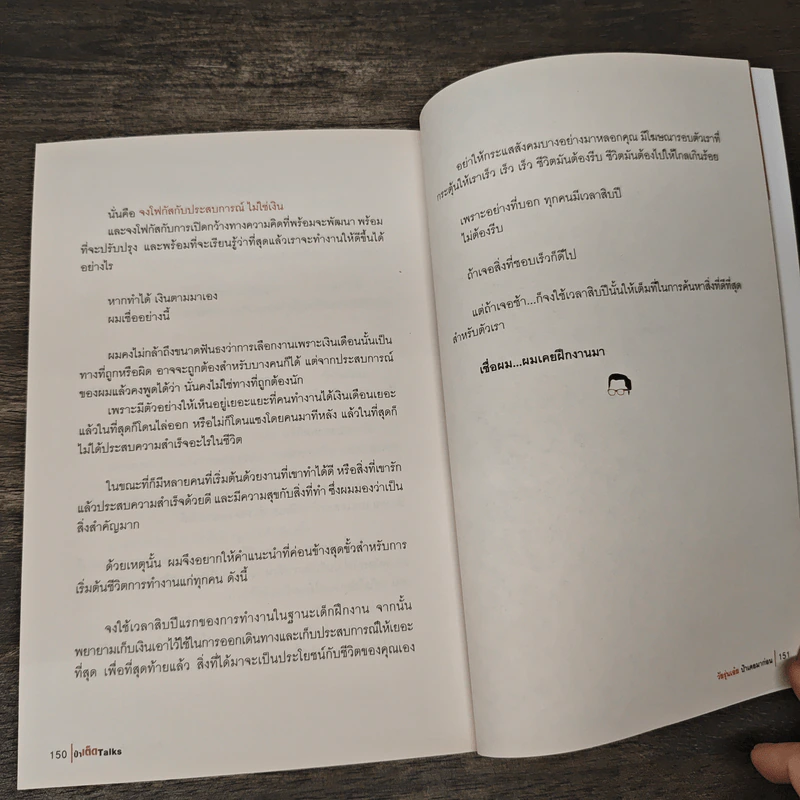 นั่นคือ จงโฟกัสกับประสบการณ์ ไม่ใช่เงิน
และจงโฟกัสกับการเปิดกว้างทางความคิดที่พร้อมจะพัฒนา พร้อม
ที่จะปรับปรุง และพร้อมที่จะเรียนรู้ว่าที่สุดแล้วเราจะทำงานให้ดีขึ้นได้
อย่างไร
หากทำได้ เงินตามมาเอง
ผมเชื่ออย่างนี้
ผมคงไม่กล้าถึงขนาดฟันธงว่าการเลือกงานเพราะเงินเดือนนั้นเป็น
ทางที่ถูกหรือผิด อาจจะถูกต้องสำหรับบางคนก็ได้ แต่จากประสบการณ์
ของผมแล้วคงพูดได้ว่า นั่นคงไม่ใช่ทางที่ถูกต้องนัก
เพราะมีตัวอย่างให้เห็นอยู่เยอะแยะที่คนทำงานได้เงินเดือนเยอะ
แล้วในที่สุดก็โดนไล่ออก หรือไม่ก็โดนแซงโดยคนมาทีหลัง แล้วในที่สุดก็
ไม่ได้ประสบความสำเร็จอะไรในชีวิต
ในขณะที่ก็มีหลายคนที่เริ่มต้นด้วยงานที่เขาทำได้ดี หรือสิ่งที่เขารัก
แล้วประสบความสำเร็จด้วยดี และมีความสุขกับสิ่งที่ทำ ซึ่งผมมองว่าเป็น
สิ่งสำคัญมาก
ด้วยเหตุนั้น ผมจึงอยากให้คำแนะนำที่ค่อนข้างสุดขั้วสำหรับการ
เริ่มต้นชีวิตการทำงานแก่ทุกคน ดังนี้
จงใช้เวลาสิบปีแรกของการทำงานในฐานะเด็กฝึกงาน จากนั้น
พยายามเก็บเงินเอาไว้ใช้ในการออกเดินทางและเก็บประสบการณ์ให้เยอะ
ที่สุด เพื่อที่สุดท้ายแล้ว สิ่งที่ได้มาจะเป็นประโยชน์กับชีวิตของคุณเอง
150 ป๋าเต็ดTalks
อย่าให้กระแสสังคมบางอย่างมาหลอกคุณ มีโฆษณารอบตัวเราที่
กระตุ้นให้เราเร็ว เร็ว เร็ว ชีวิตมันต้องรีบ ชีวิตมันต้องไปให้ไกลเกินร้อย
เพราะอย่างที่บอก ทุกคนมีเวลาสิบปี
ไม่ต้องรีบ
ถ้าเจอสิ่งที่ชอบเร็วก็ดีไป
แต่ถ้าเจอช้า...ก็จงใช้เวลาสิบปีนั้นให้เต็มที่ในการค้นหาสิ่งที่ดีที่สุด
สำหรับตัวเรา
เชื่อผม...ผมเคยฝึกงานมา
วัยรุ่นเอ๋ย ป๋าเคยมาก่อน 151